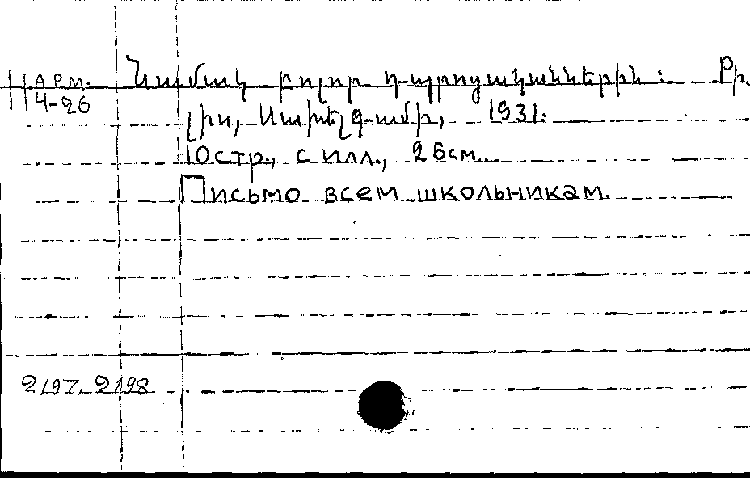 АРМ. Նամակ բոլոր դպրոցականներին: Թի.
4-26
լիս, 1931.
10 стр., с илл., 26см.
Письмо всем школьникам.
2197. 2198